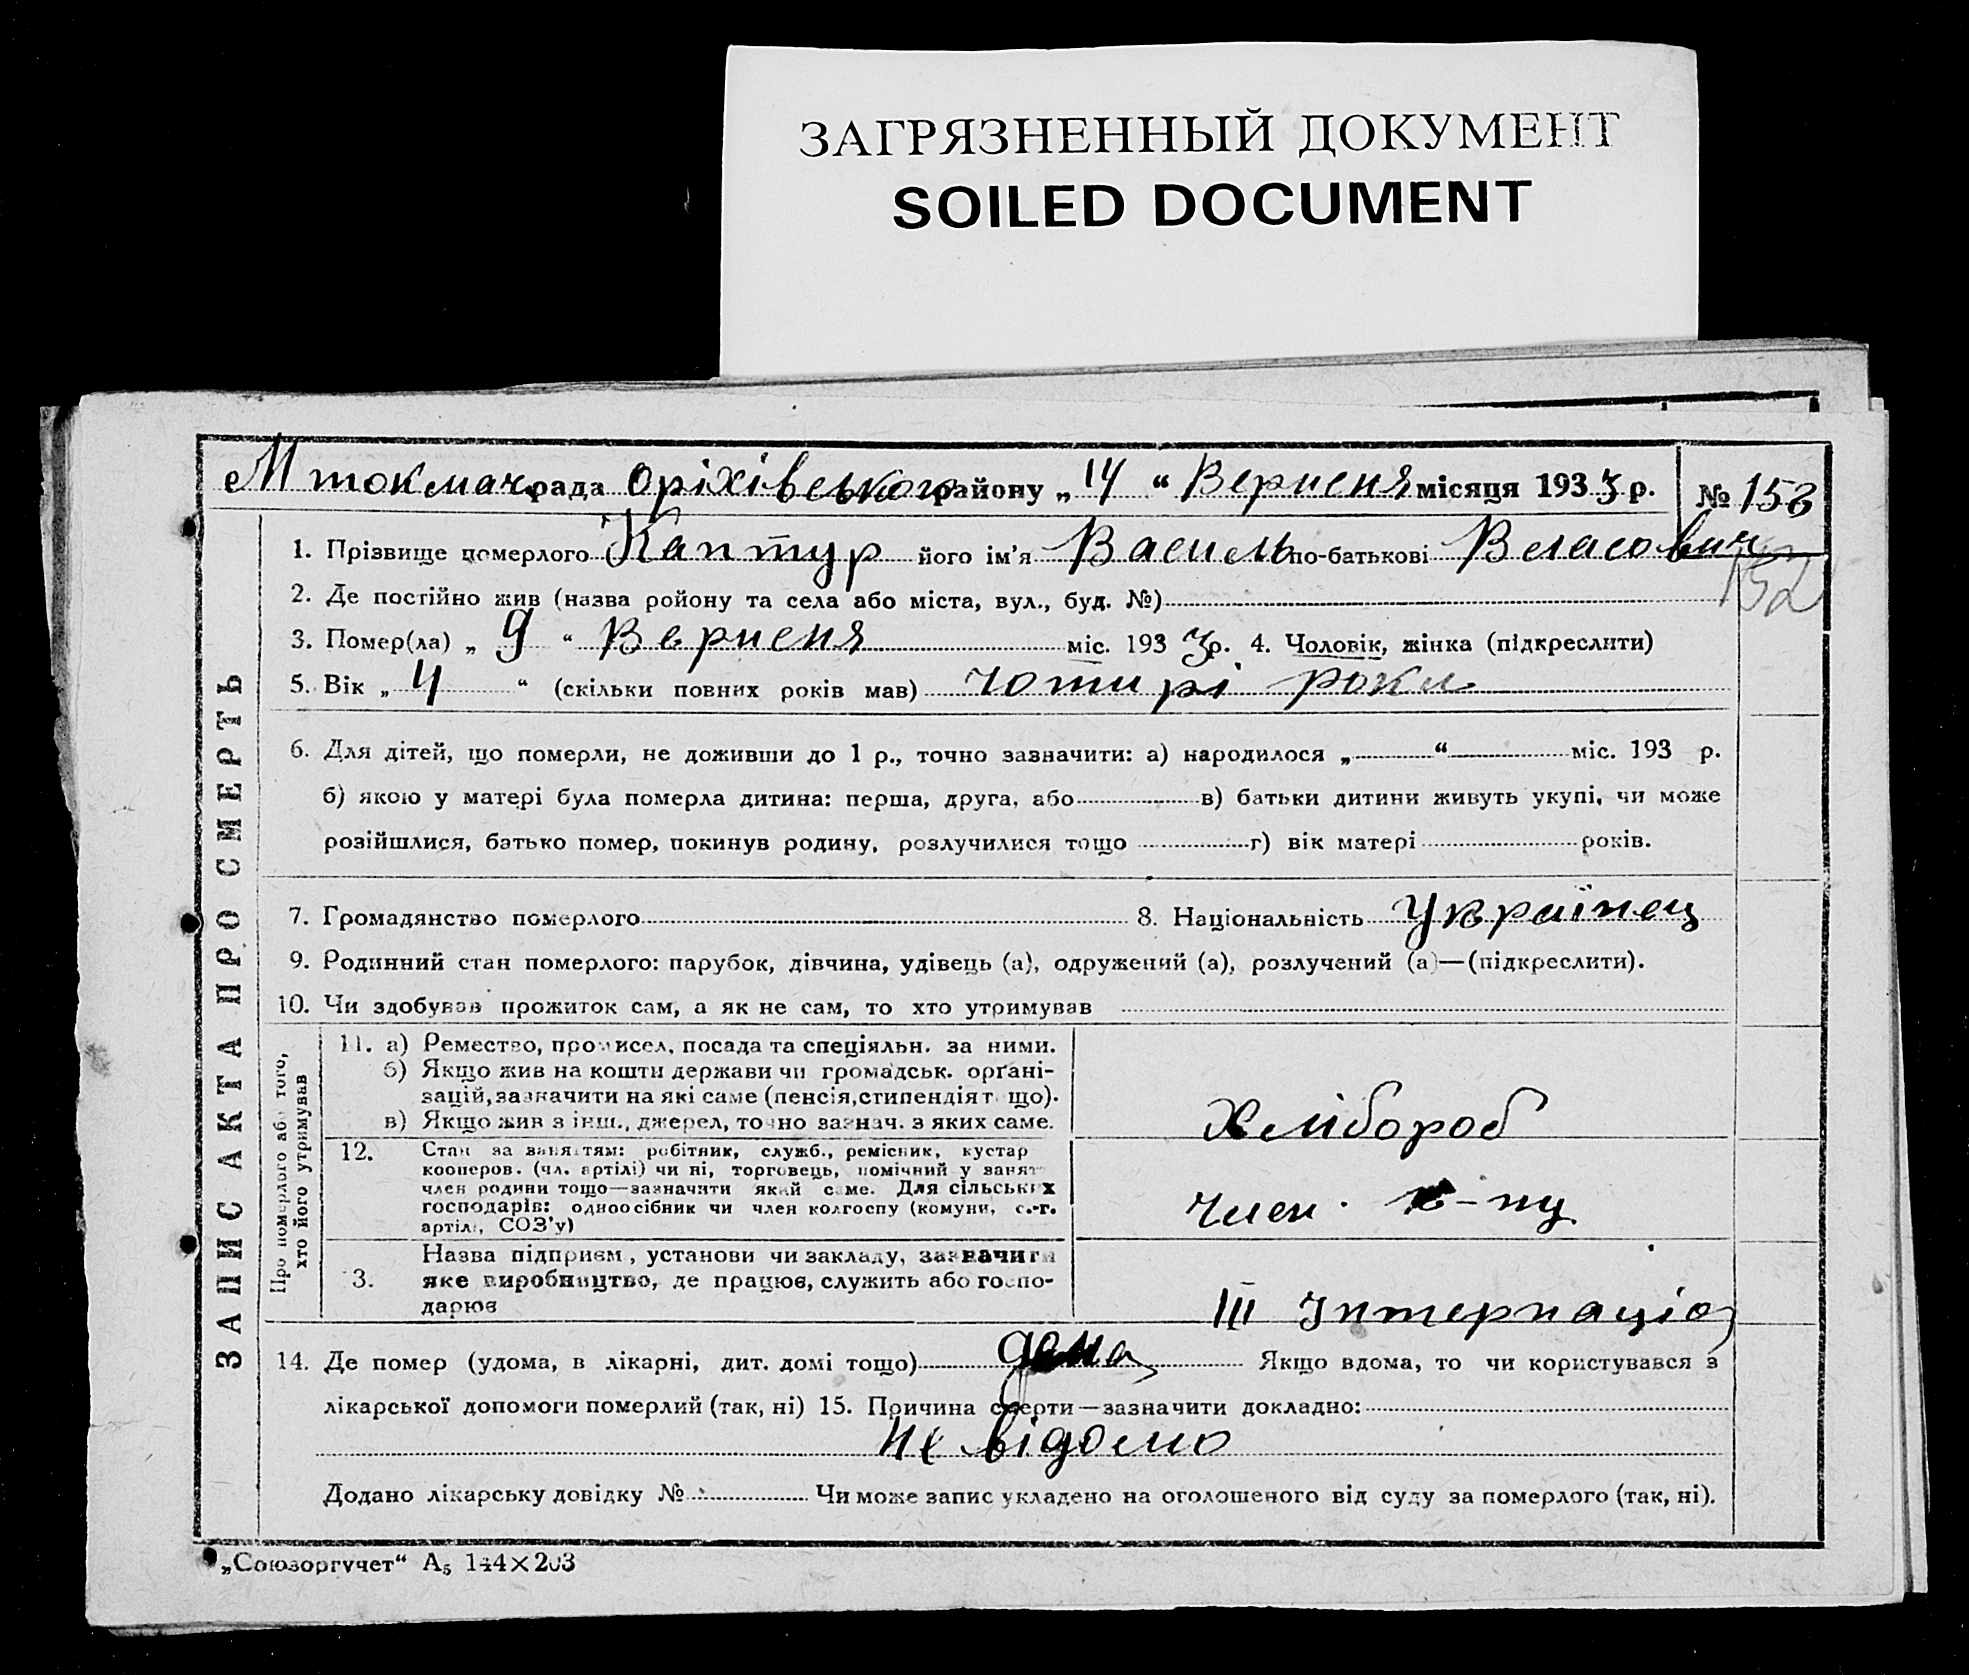 ЗАГРЯЗНЕННЫЙ ДОКУМЕНТ
SOILED DOCUMENT
М токмач. рада Оріхівського району „ 14 “ Вересня місяця 1933 р. № 153
1. Прізвище померлого Каптур його ім'я Василь по-батькові Власович
152
2. Де постійно жив (назва ройону та села або міста, вул., буд. №)
3. Помер(ла) „ 9 “ Вересня міс. 1933 р. 4. Чоловік, жінка (підкреслити)
5. Вік „ 4 “ (скільки повних років мав) чотирі роки
6. Для дітей, що померли, не доживши до 1 р., точно зазначити: а) народилося „ “ міс. 193 р.
б) якою у матері була померла дитина: перша, друга, або в) батьки дитини живуть укупі, чи може
розійшлися, батько помер, покинув родину, розлучилися тощо г) вік матері років.
7. Громадянство померлого 8. Національність Українец
9. Родинний стан померлого: парубок, дівчина, удівець (а), одружений (а), розлучений (а)—(підкреслити).
10. Чи здобував прожиток сам, а як не сам, то хто утримував
ЗАПИС АКТА ПРО СМЕРТЬ
Про померлого або того,
хто його утримував
11. а) Ремество, промисел, посада та спеціяльн. за ними.
б) Якщо жив на кошти держави чи громадськ. орґані-
зацій, зазначити на які саме (пенсія, стипендія т що).
в) Якщо жив з інш., джерел, точно зазнач. з яких саме.
Хлібороб
12. Стан за заняттям: робітник, служб., ремісник, кустар
кооперов. (чл. артілі) чи ні, торговець, помічний у занят
член родини тощо—зазначити який саме. Для сільських
господарів: одноосібник чи член колгоспу (комуни, с.-г.
артілі, СОЗ'у)
член. к-пу
13. Назва підприєм., установи чи закладу, зазначити
яке виробництво, де працює, служить або госпо-
дарює
III Інтернаціо
14. Де помер (удома, в лікарні, дит. домі тощо) дома Якщо вдома, то чи користувався з
лікарської допомоги померлий (так, ні) 15. Причина смерти—зазначити докладно:
не відомо
Додано лікарську довідку № Чи може запис укладено на оголошеного від суду за померлого (так, ні).
„Союзоргучет“ А5 144×203